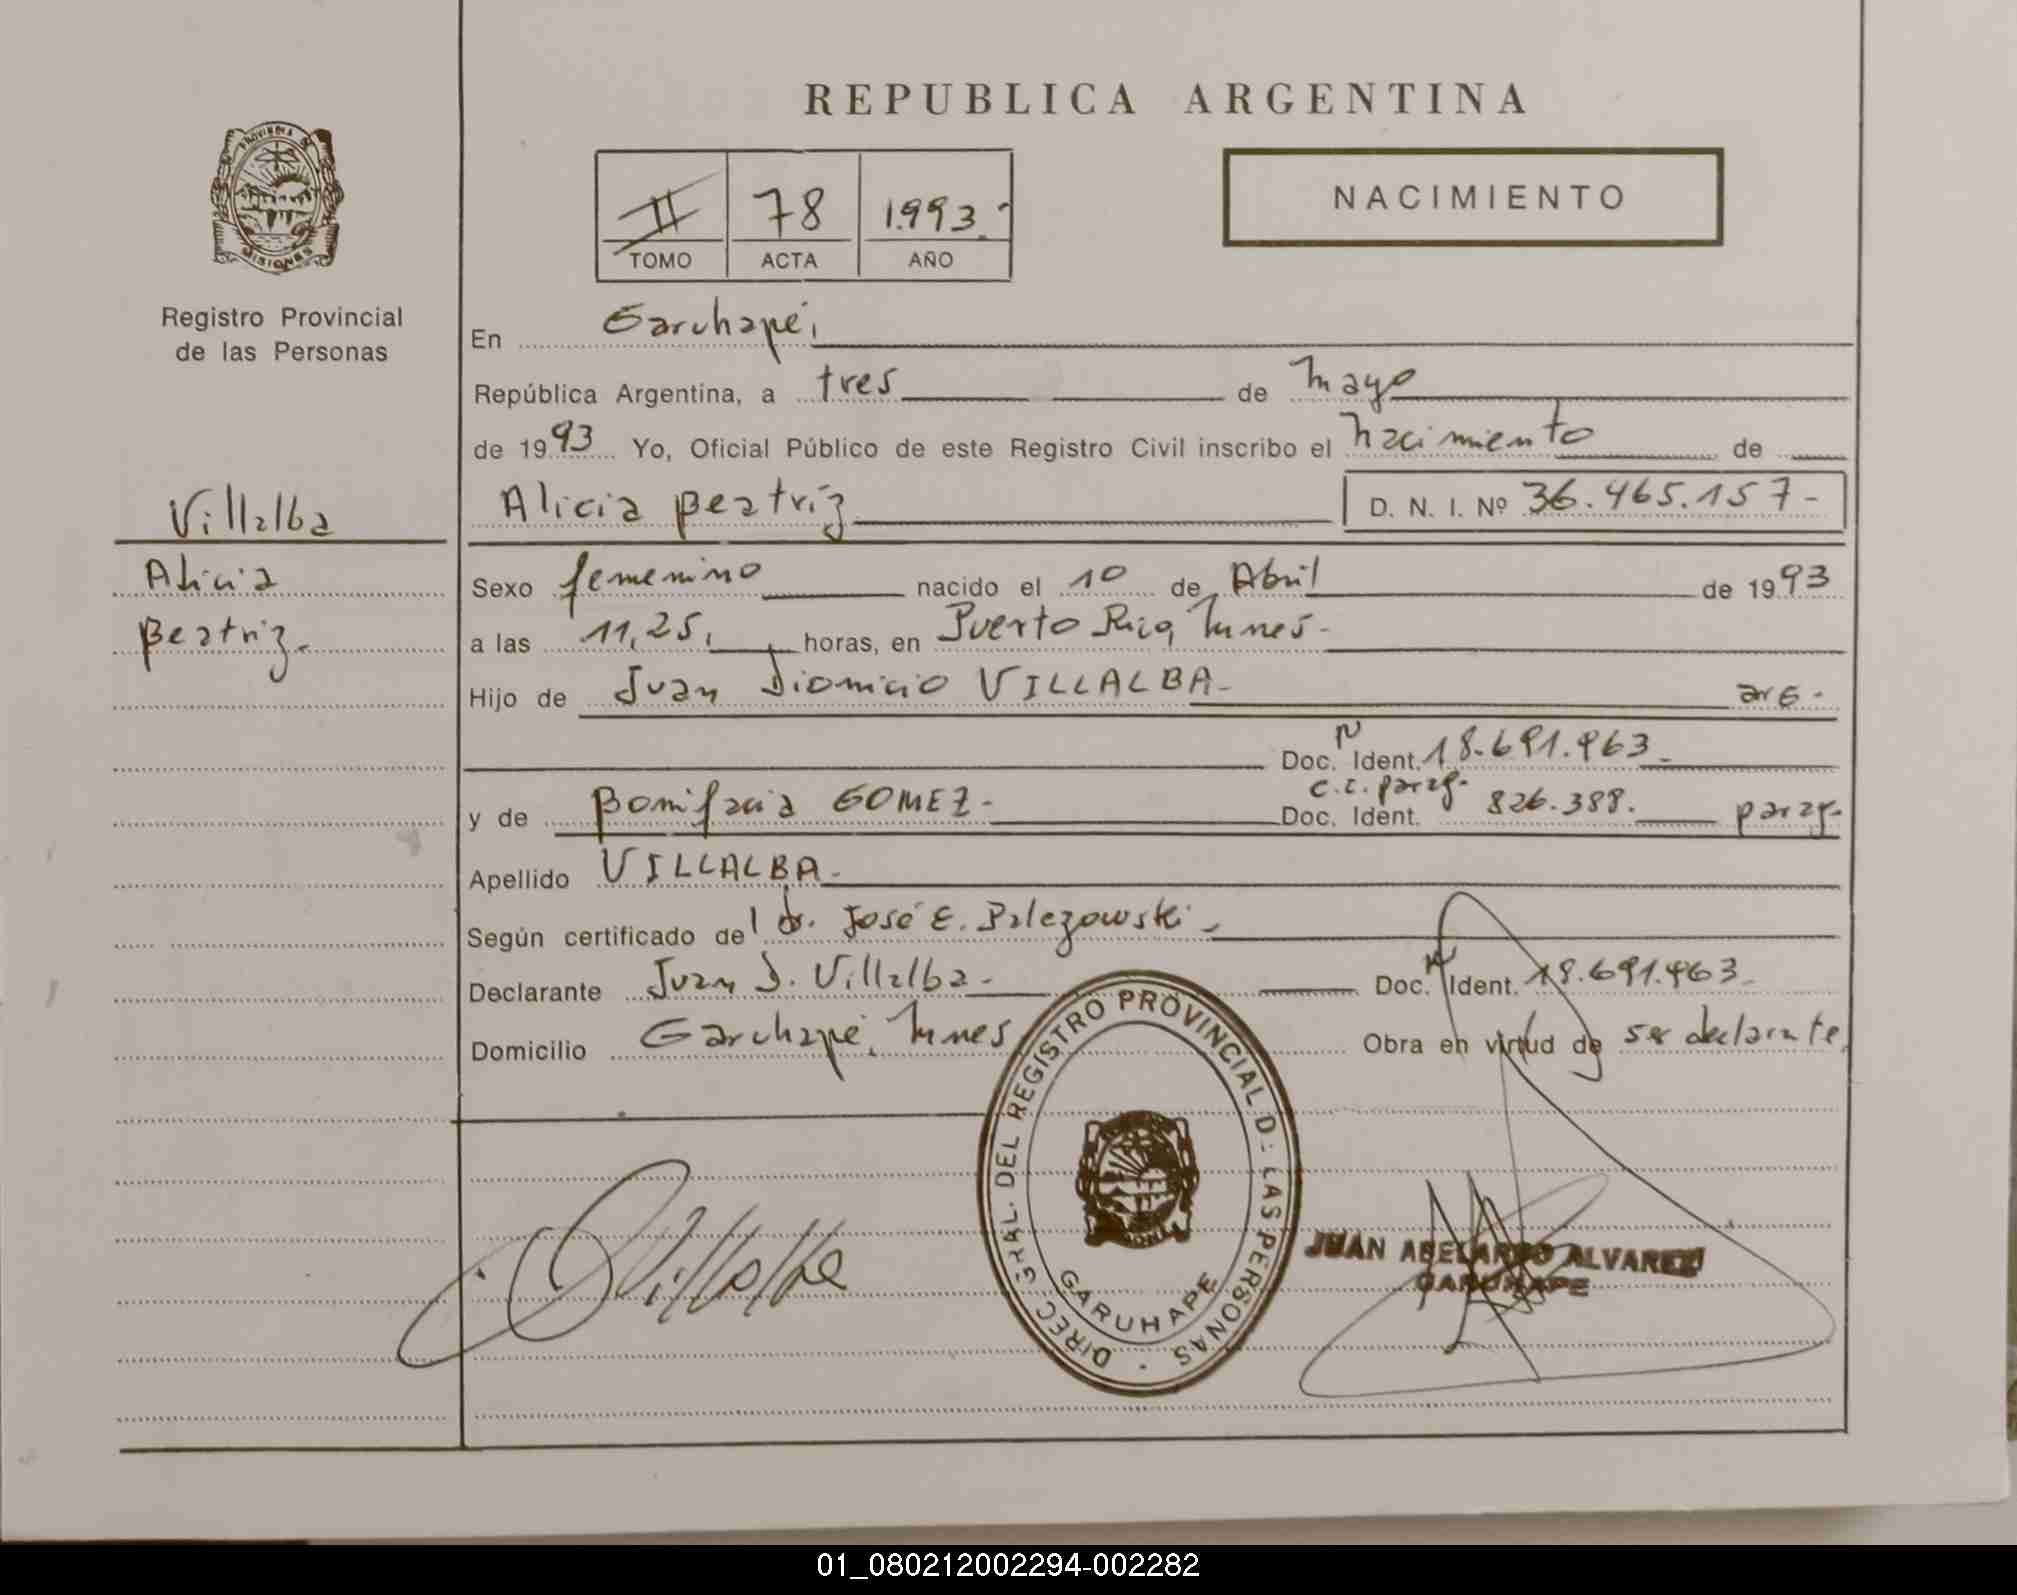 REPUBLICA ARGENTINA
PROVINCIA DE MISIONES
Registro Provincial
de las Personas
II 78 1.993.-
TOMO ACTA AÑO
NACIMIENTO
En Garuhapé,
República Argentina, a tres de mayo
de 1993 Yo, Oficial Público de este Registro Civil inscribo el nacimiento de
Alicia Beatríz D. N. I. Nº 36.465.157-
Villalba
Alicia
Beatriz.-
Sexo femenino nacido el 10 de Abril de 1993
a las 11,25, horas, en Puerto Rico,
Hijo de Juan Dionicio VILLALBA- arg-
Doc. N Ident. 18.691.963-
y de Bonifacia GOMEZ- Doc. Ident. C.I. parag. 826.388. parag-
Apellido VILLALBA-
Según certificado del dr. José E.
Declarante Juan D. Villalba- Doc. N Ident. 18.691.963-
Domicilio Garuhapé, Obra en virtud de ser declarante,
Villalba
DIREC. GRAL. DEL REGISTRO PROVINCIAL D: LAS PERSONAS
GARUHAPE
JUAN ABELARDO ALVAREZ
GARUHAPE
01_080212002294-002282